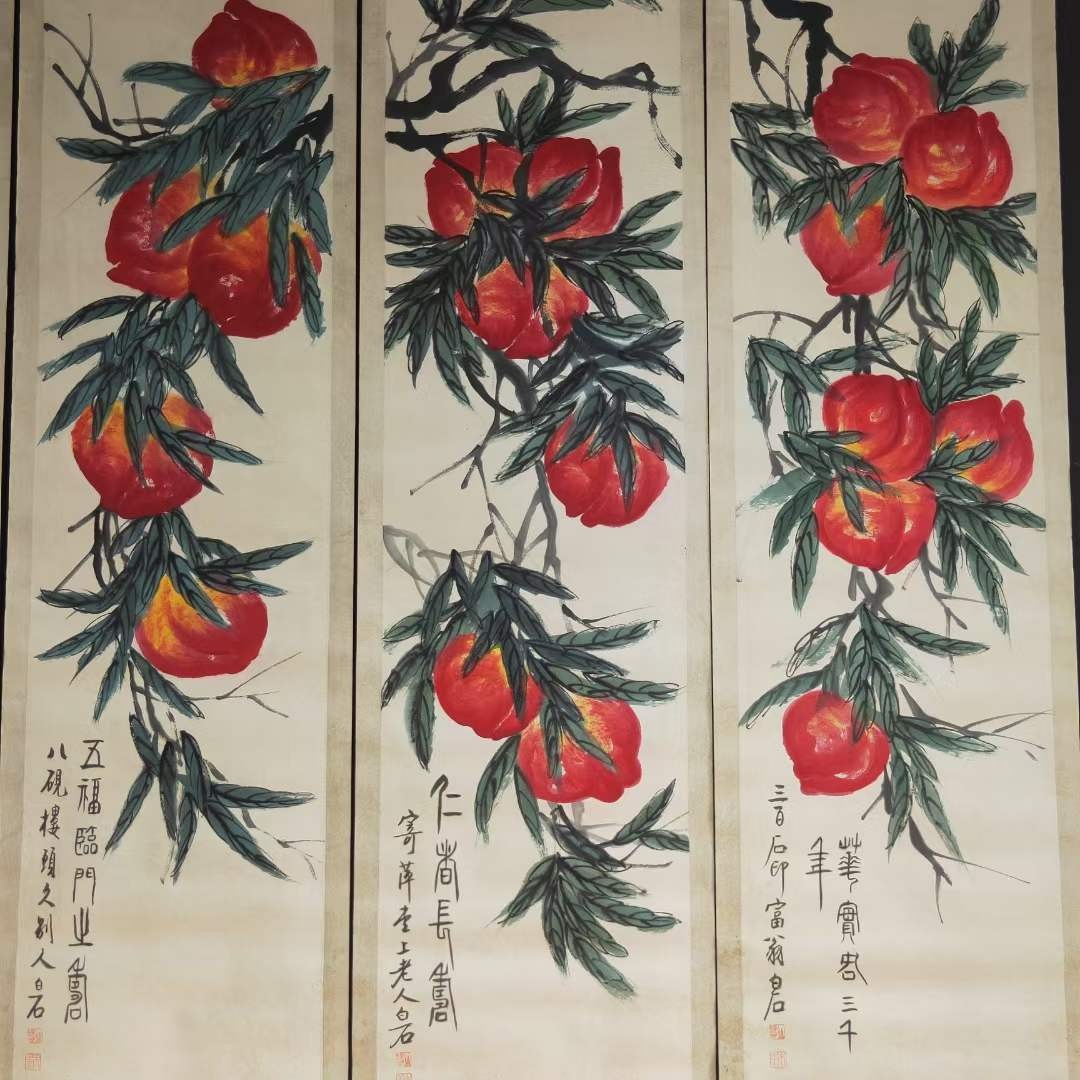 華實各三千
年
三百石印富翁白石
仁者長壽
寄萍堂上老人白石
五福臨門之壽
八硯樓頭久別人白石